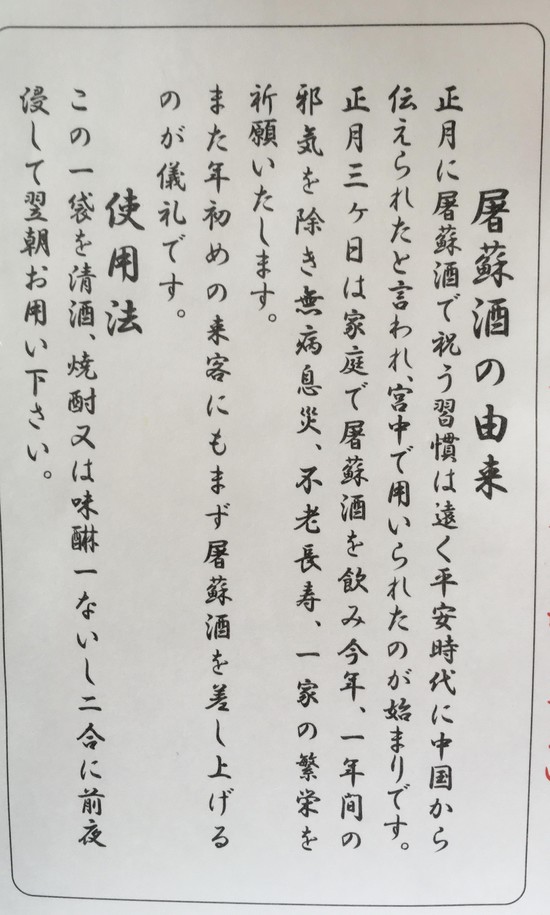 屠蘇酒の由来
正月に屠蘇酒で祝う習慣は遠く平安時代に中国から
伝えられたと言われ、宮中で用いられたのが始まりです。
正月三ヶ日は家庭で屠蘇酒を飲み今年、一年間の
邪気を除き無病息災、不老長寿、一家の繁栄を
祈願いたします。
また年初めの来客にもまず屠蘇酒を差し上げる
のが儀礼です。
使用法
この一袋を清酒、焼酎又は味醂一ないし二合に前夜
浸して翌朝お用い下さい。